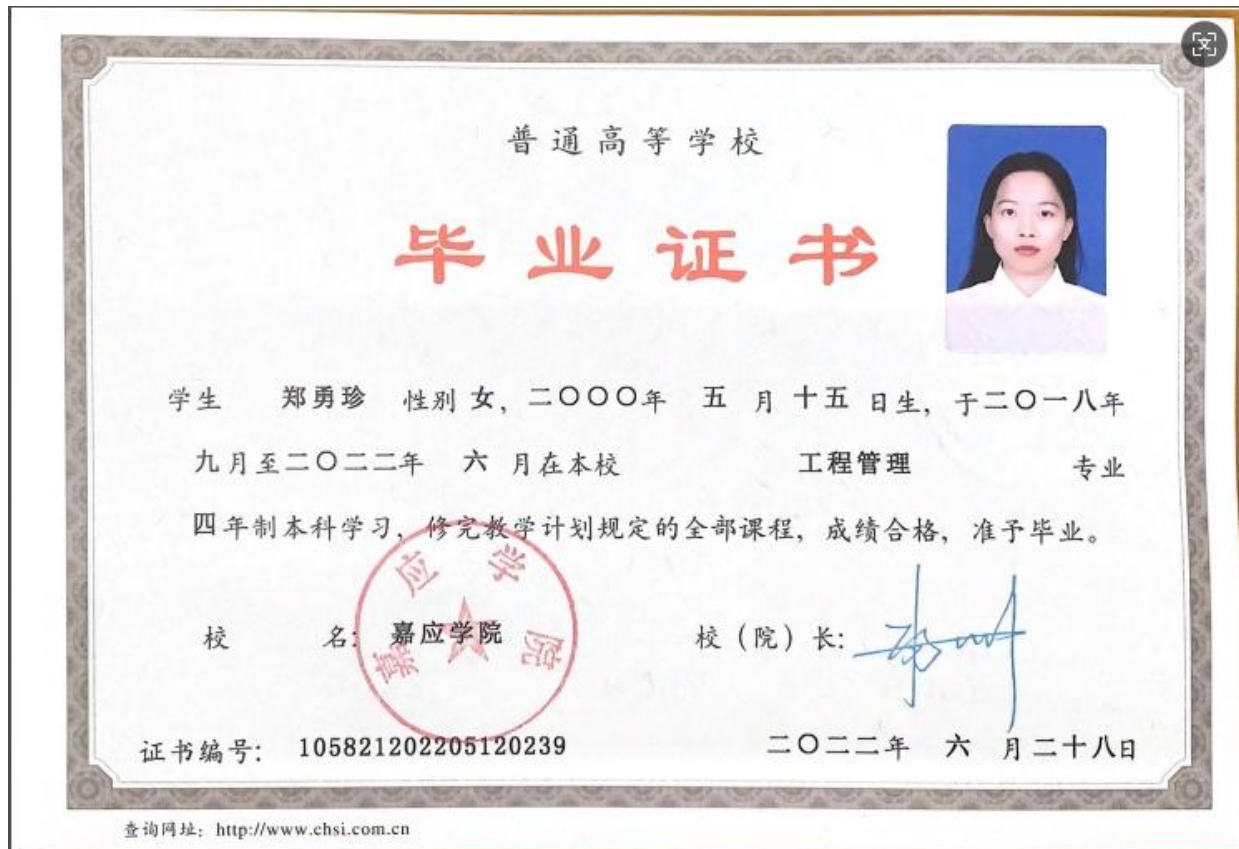 普通高等学校
毕业证书
学生 郑勇珍 性别 女，二〇〇〇年 五 月 十五 日生，于二〇一八年
九月至二〇二二年 六 月在本校 工程管理 专业
四年制本科学习，修完教学计划规定的全部课程，成绩合格，准予毕业。
校 名：嘉应学院 校（院）长：
嘉应学院
证书编号：105821202205120239 二〇二二年 六 月二十八日
查询网址：http://www.chsi.com.cn